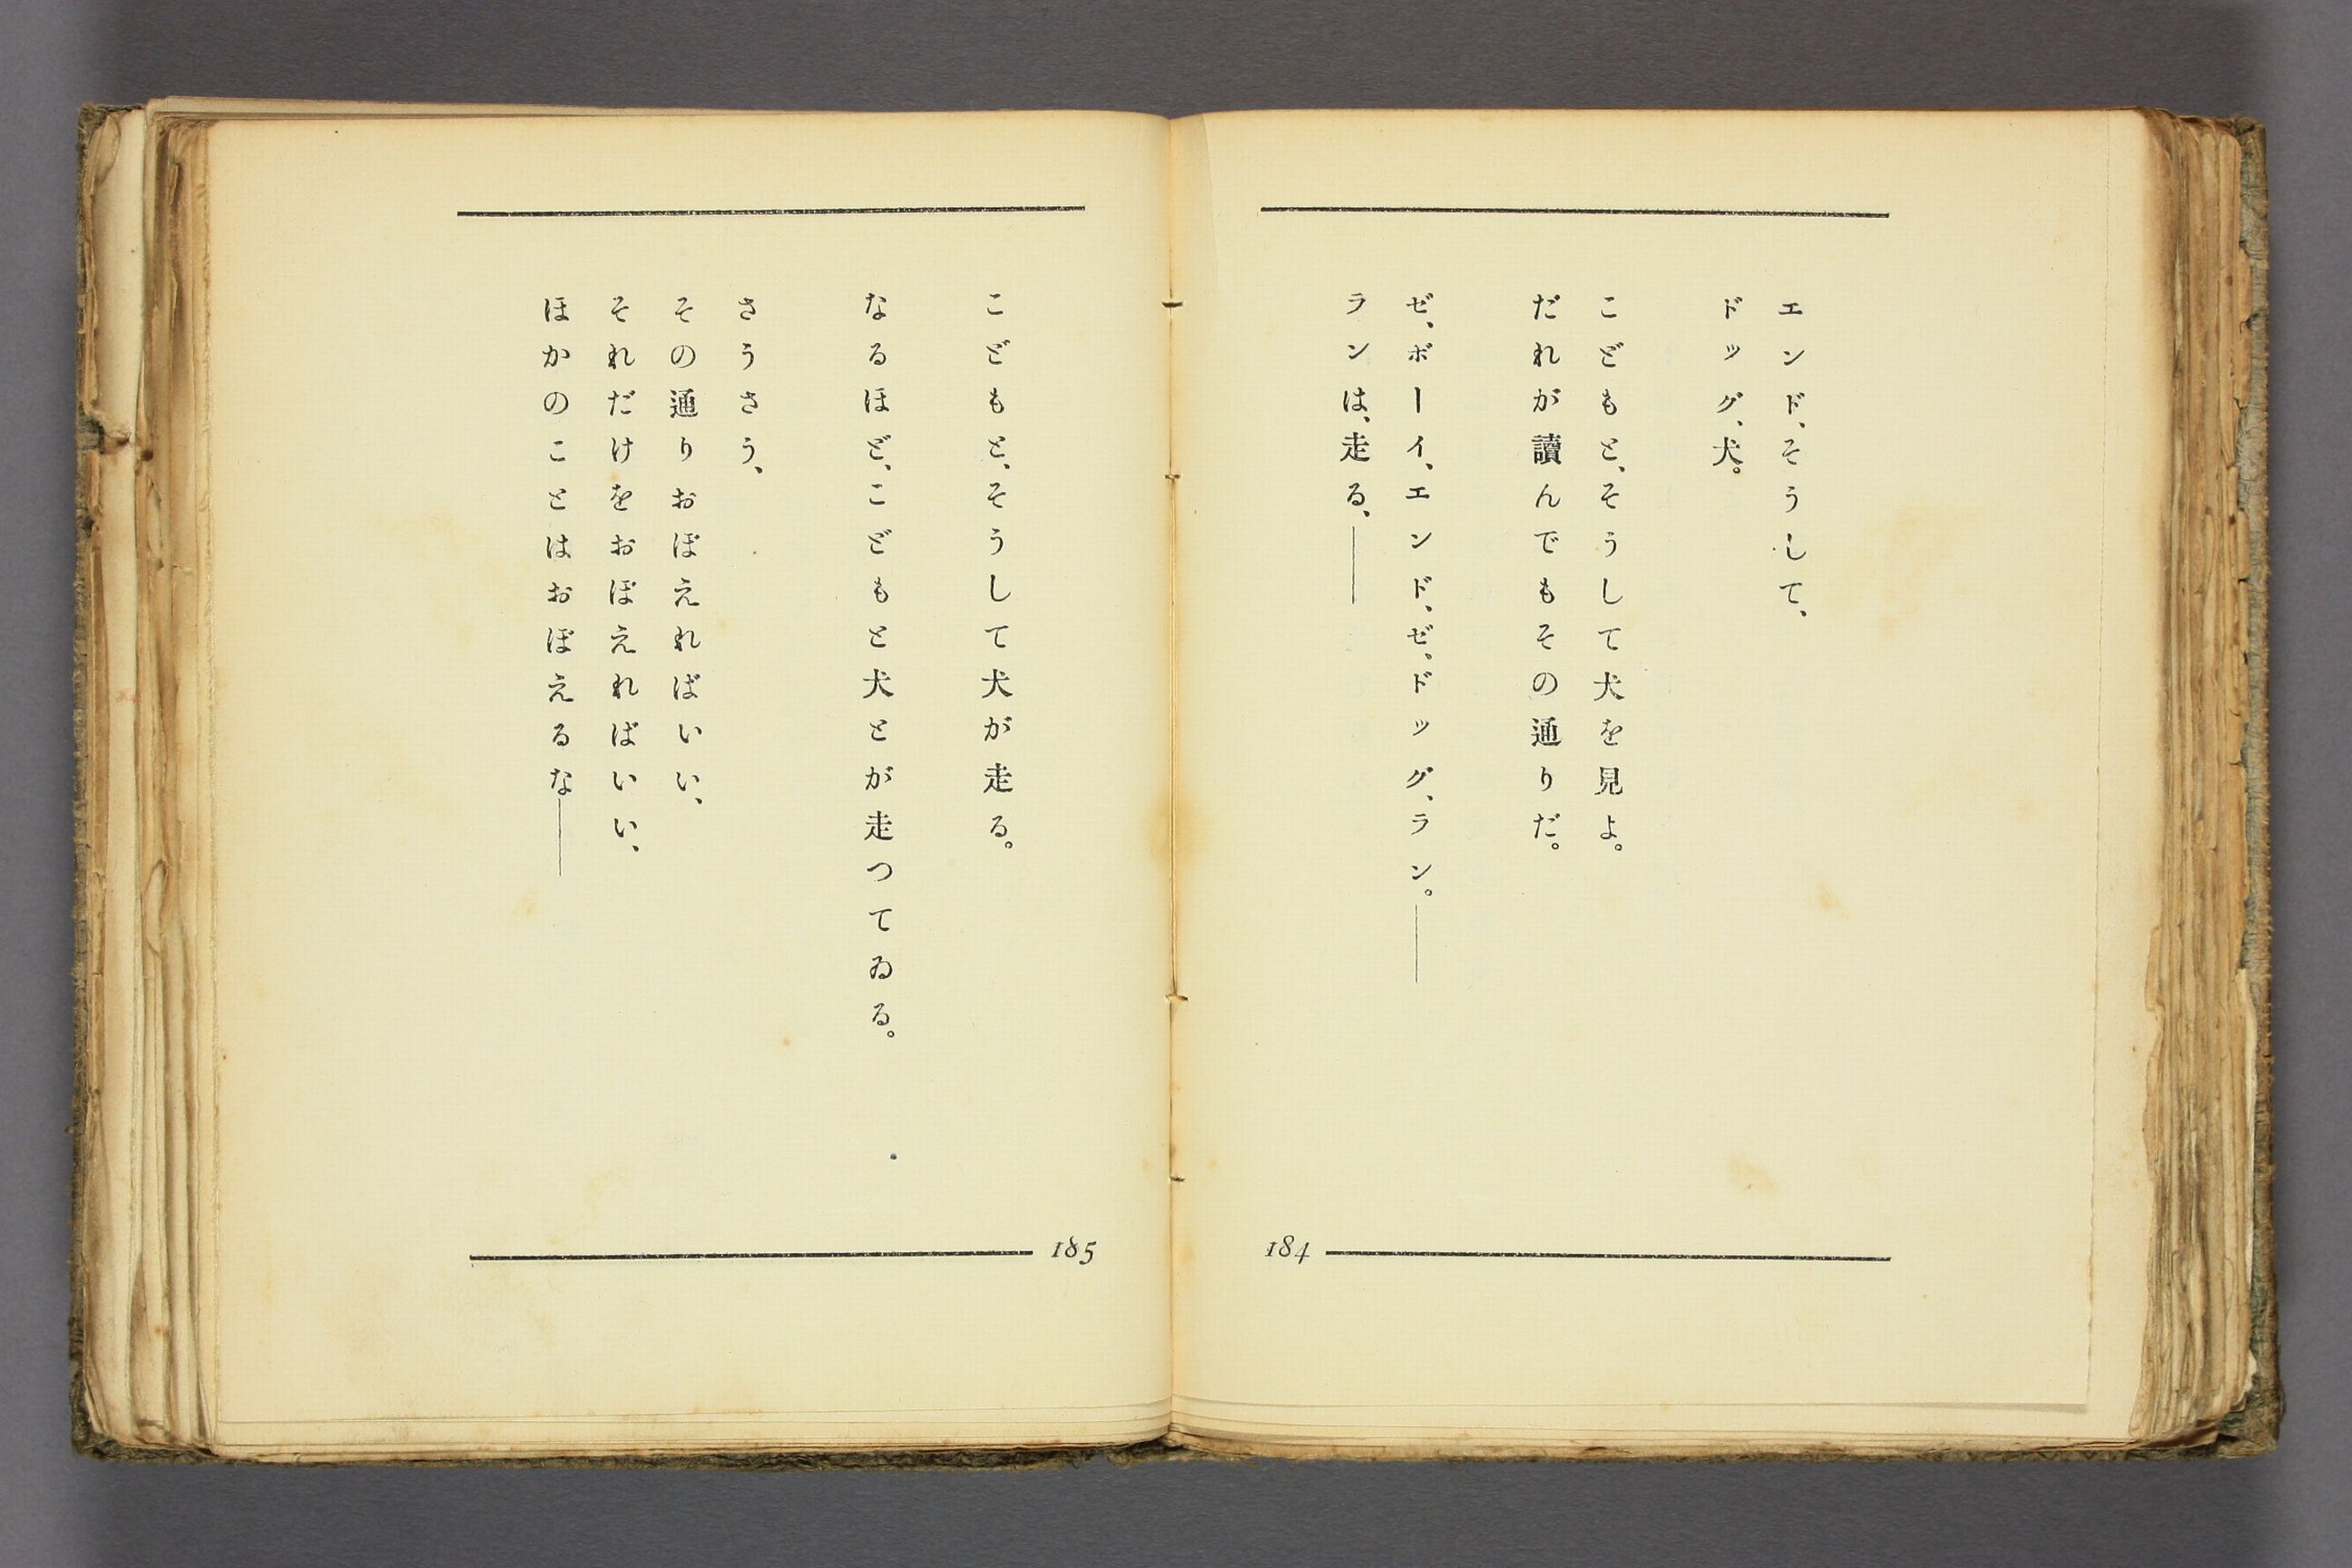 エンド、そうして、
ドッグ、犬。
こどもと、そうして犬を見よ。
だれが讀んでもその通りだ。
ゼ、ボーイ、エンド、ゼ。ドッグ、ラン。――
ランは、走る、――
184
こどもと、そうして犬が走る。
なるほど、こどもと犬とが走つてゐる。
さうさう、
その通りおぼえればいい、
それだけをおぼえればいい、
ほかのことはおぼえるな――
185